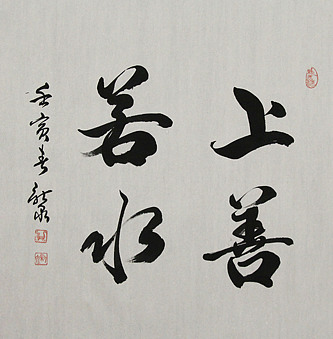 上善
若水
壬寅春